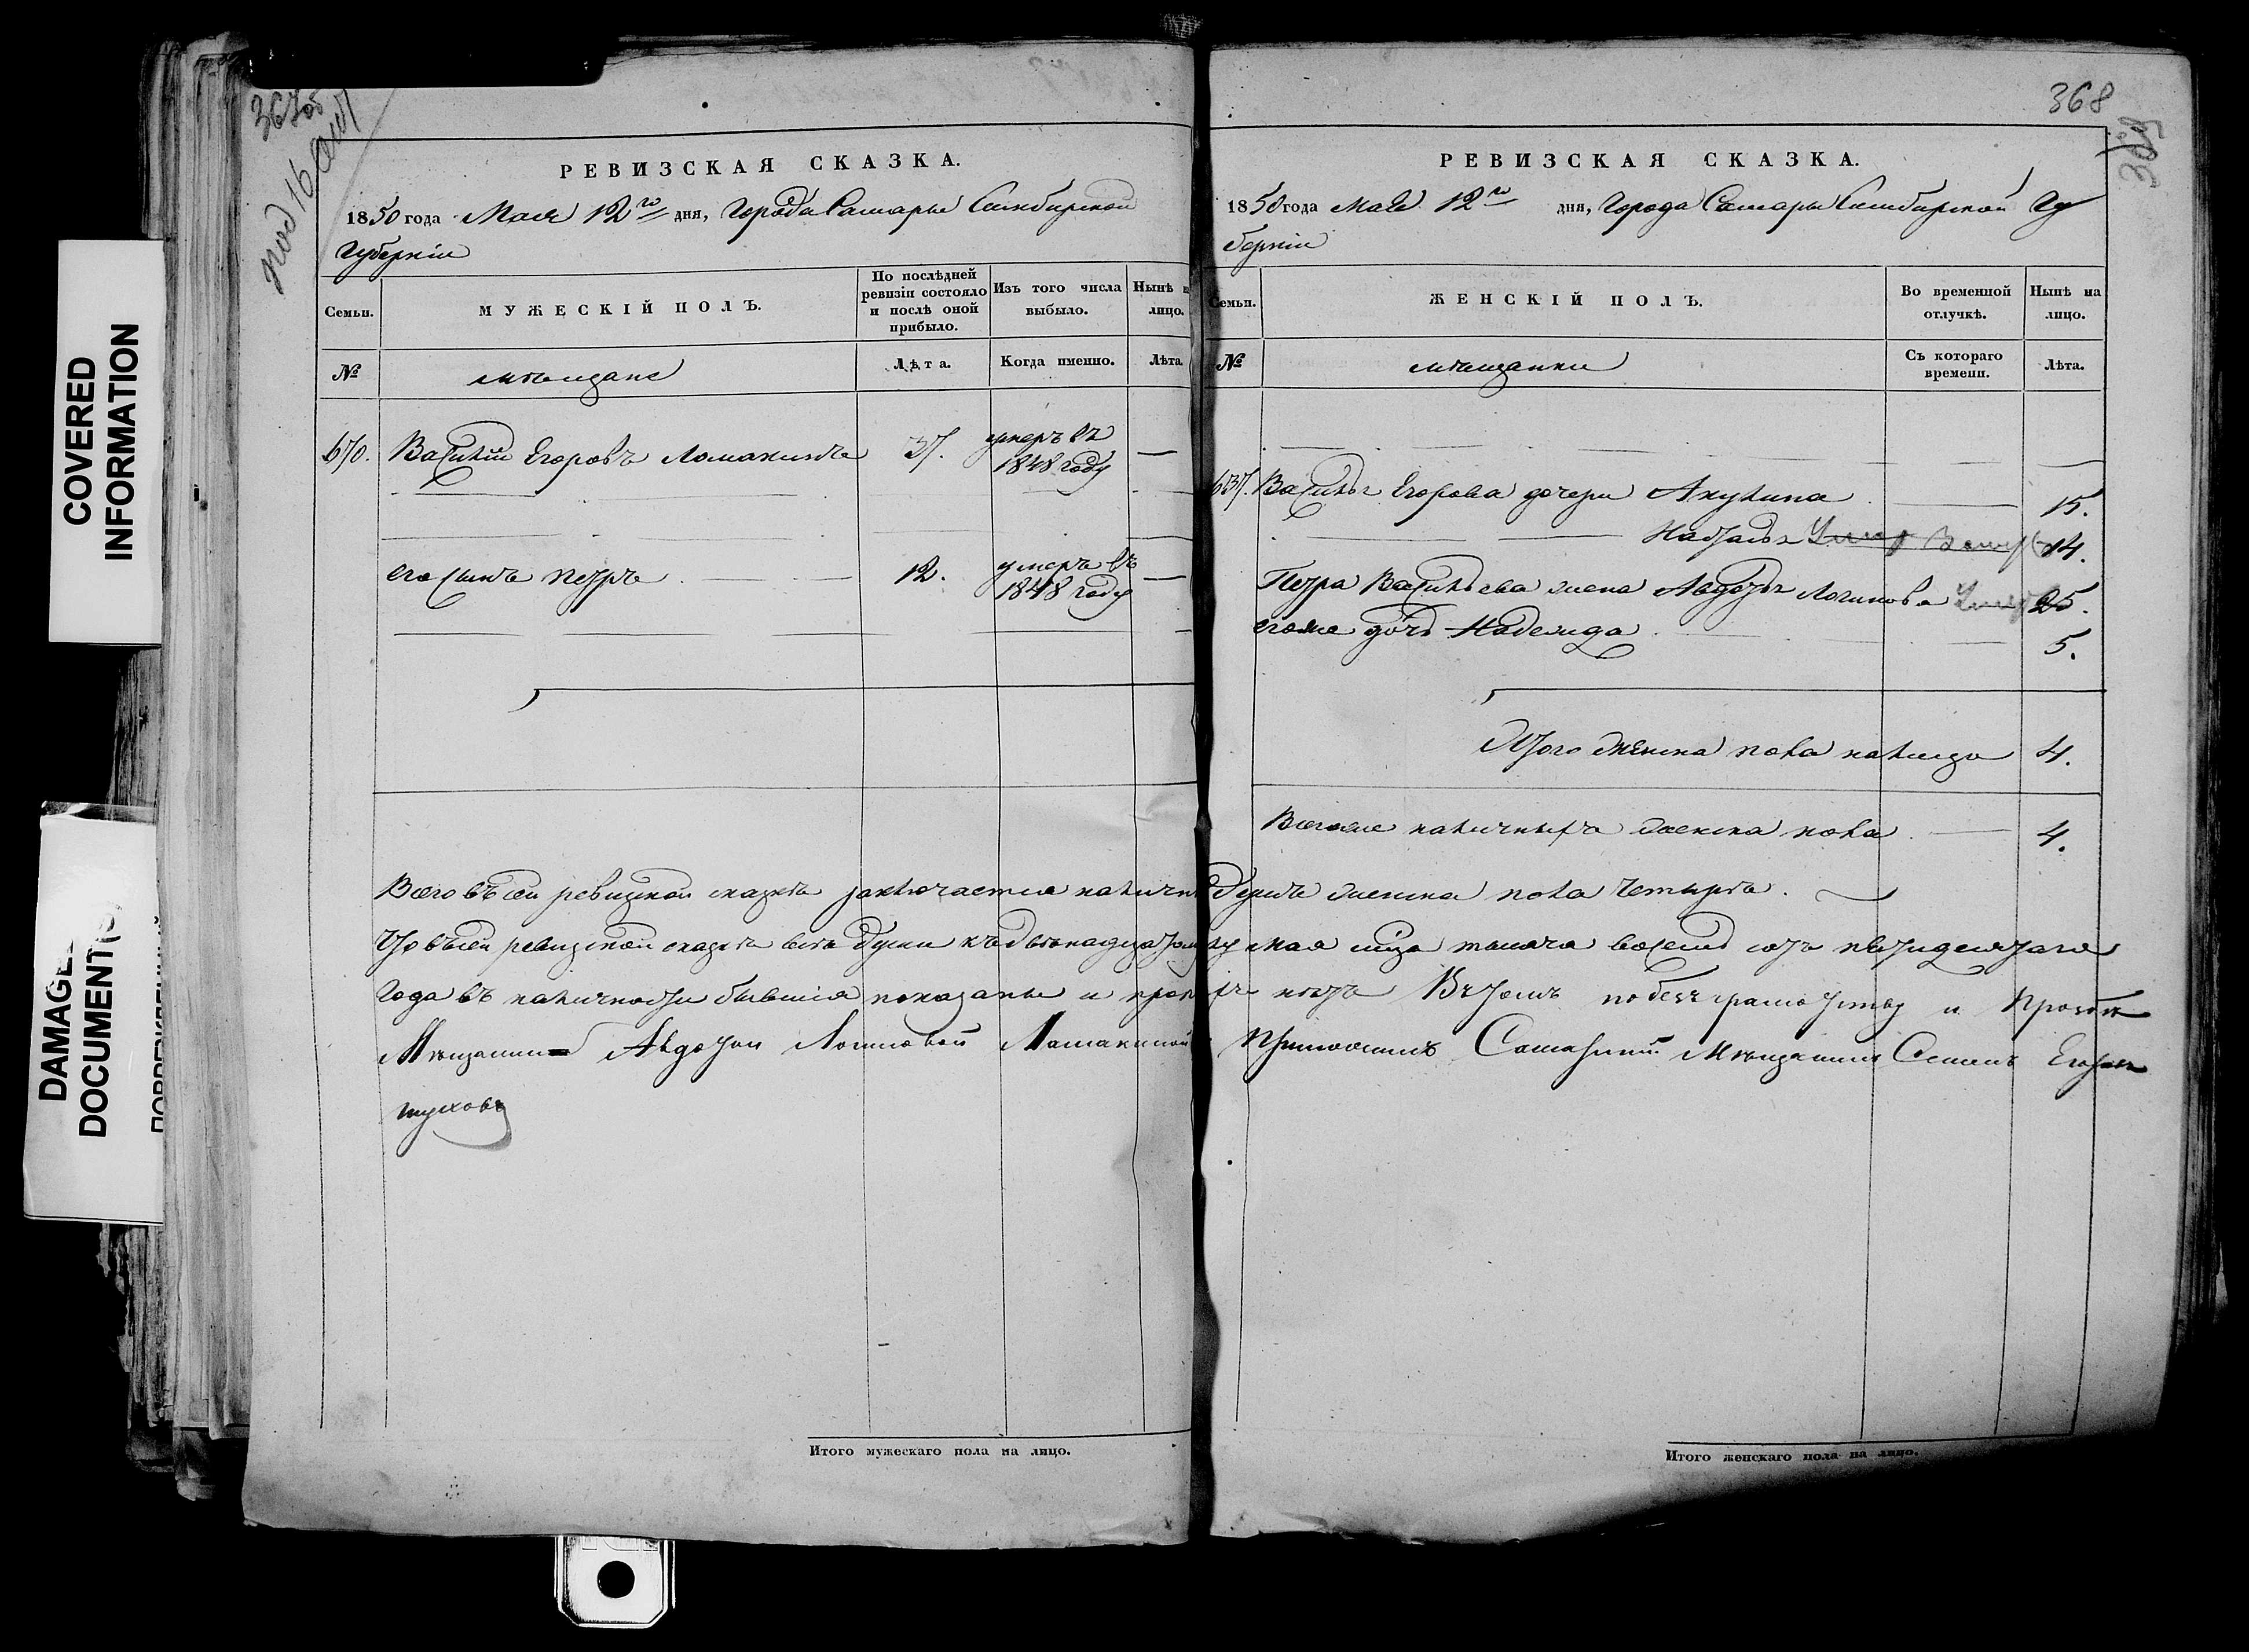 COVERED
INFORMATION
DAMAGE
DOCUMENT(S
367об
под 16
РЕВИЗСКАЯ СКАЗКА.
1850 года Мая 12го дня, Города Самары Симбирской
Губернiи
Семьи.
МУЖЕСКІЙ ПОЛЪ.
По послѣдней
ревизіи состояло
и послѣ оной
прибыло.
Изъ того числа
выбыло.
Нынѣ н
лицо.
№
мѣщане
Лѣта.
Когда именно.
Лѣта
670. Василiй Егоровъ Ломакинъ 37. умеръ въ
1848 году —
его сынъ Петръ 12. умеръ въ
1848 году —
368
РЕВИЗСКАЯ СКАЗКА.
1850 года Мая 12го дня, Города Самары Симбирской Гу
бернiи
Семьи.
ЖЕНСКІЙ ПОЛЪ.
Во временной
отлучкѣ.
Нынѣ на
лицо.
№
мѣщанки
Съ котораго
времени.
Лѣта.
637. Василья Егорова дочери Акулина 15.
Наталья 14.
Петра Васильева жена Авдотья Логинова 25.
егоже дочь Надежда 5.
Итого женска пола налицо 4.
Всегоже наличныхъ женска пола 4.
Всего въ сей ревизкой сказкѣ заключается наличн душъ женска пола четыре.
Что въ сей ревизской сказкѣ всѣ души къ двѣнадцатому мая сего тысяча восемь сотъ пятидесятаго
года въ наличности бывшiя показаны и про хъ нѣтъ Въ томъ по безграмотству и прозбѣ
Мѣщанки Авдотьи Логиновой Ломакиной Самарскiй Мѣщанинъ Семенъ Егоровъ
Итого мужескаго пола на лицо.
Итого женскаго пола на лицо.